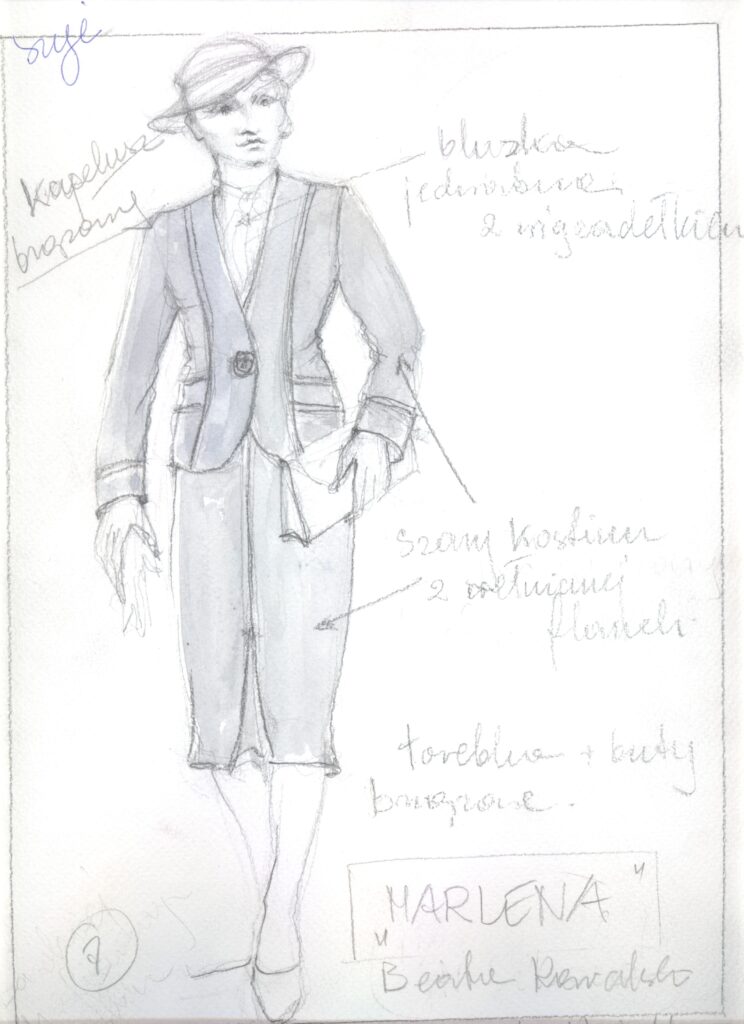 szyje
Kapelusz
brązowy
bluzka
jedwabna
z wigzadełkiem
szary kostium
z wełnianej
flaneli
torebka + buty
brązowe.
"MARLENA"
Kowalska
7